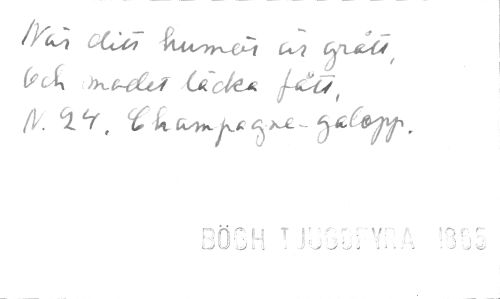 När ditt humör är grått,
och modet läcka fått,
N. 24. Champagne-galopp.
BÖGH TJUGOFYRA 1865